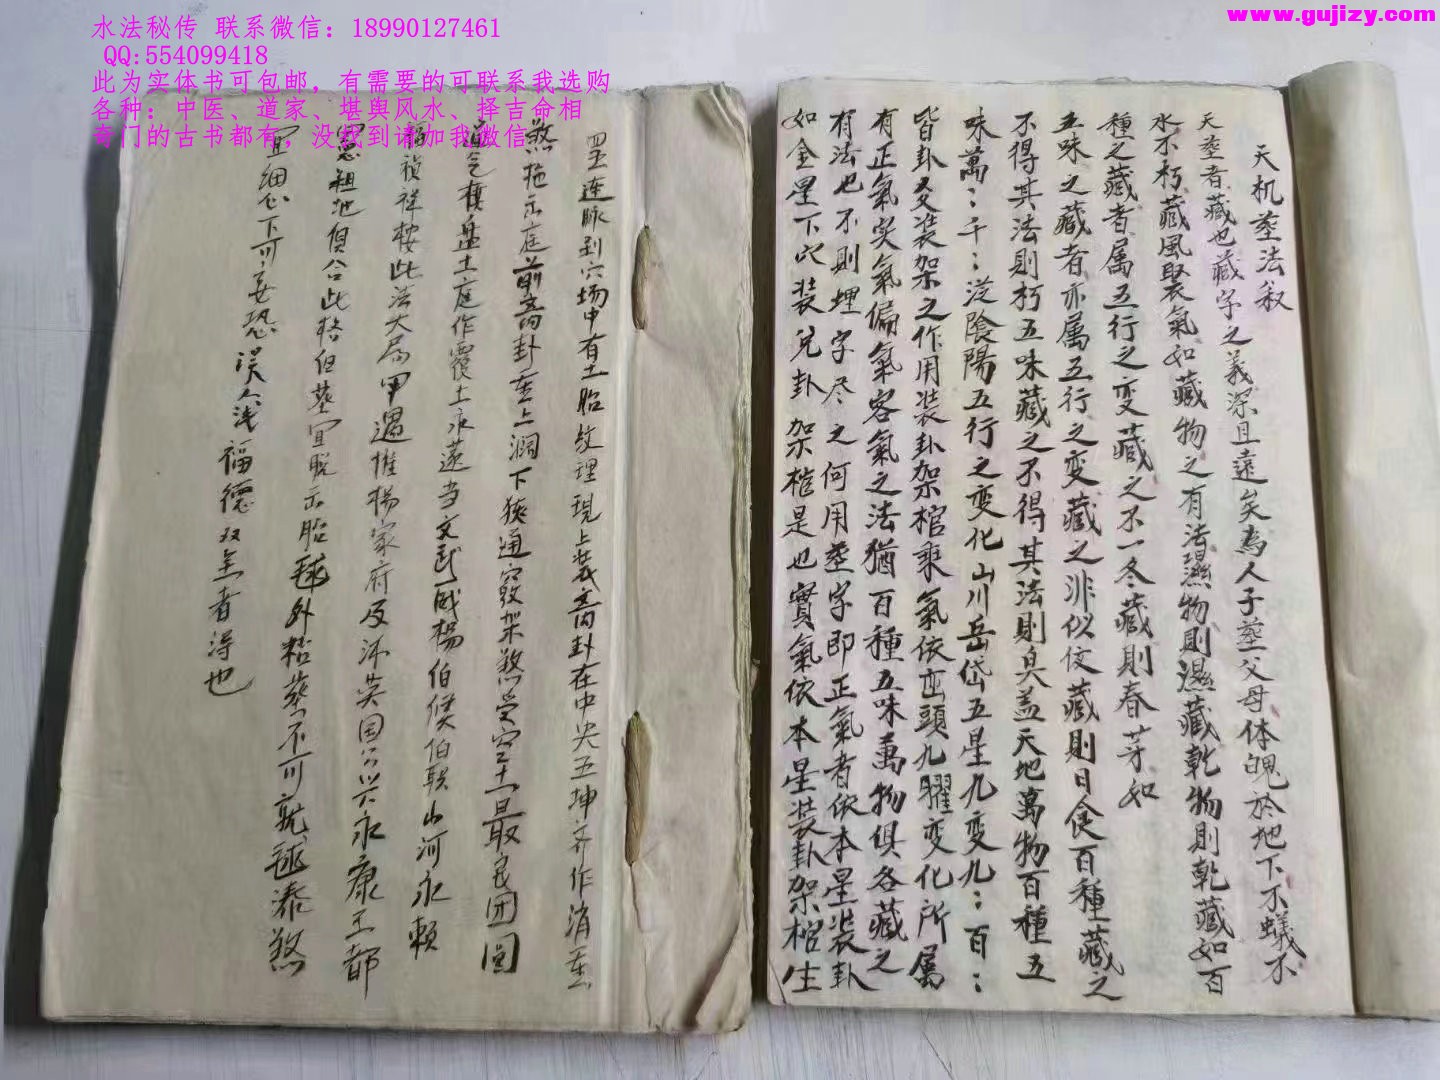 水法秘传 联系微信：18990127461
QQ:554099418
此为实体书可包邮，有需要的可联系我选购
各种：中医、道家、堪舆风水、择吉命相
奇门的古书都有，没找到请加我微信
www.gujizy.com
天机塟法叙
天塟者藏也藏字之義深且遠矣為人子塟父母体魄於地下不蟻不
水不朽藏風聚氣如藏物之有法濕物則濕藏乾物則乾藏如百
種之藏者属五行之变藏之不一冬藏則春芽如
五味之藏者亦属五行之变藏之非似佼藏則日食百種藏之
不得其法則朽五味藏之不得其法則臭盖天地萬物百種五
味萬：千：从陰陽五行之变化山川岳岱五星九变九：百：
皆卦爻装架之作用装卦架棺乘氣依峦頭九曜变化所属
有正氣癸氣偏氣客氣之法猶百種五味萬物俱各藏之
有法也不則埋字尽之何用塟字即正氣者依本星装卦
如金星下穴装兑卦架棺是也實氣依本星装卦架棺生
连脉到穴场中有土胎纹理現上装啇卦在中央五坤齐作消在
煞拖出庭前啇卦在上润下棪通竅架煞受穴土最良团圓
模盘土庭作覆土永遂当文武威楊伯侯伯联山河永賴
祯祥桉此法大局甲遇惟杨家府及沐英国公兴六永康王都
祖地俱合此格但塟宜脱出胎毬外粘塟不可就毬添煞
宜细心下可妄恐误人法福德双全者得也